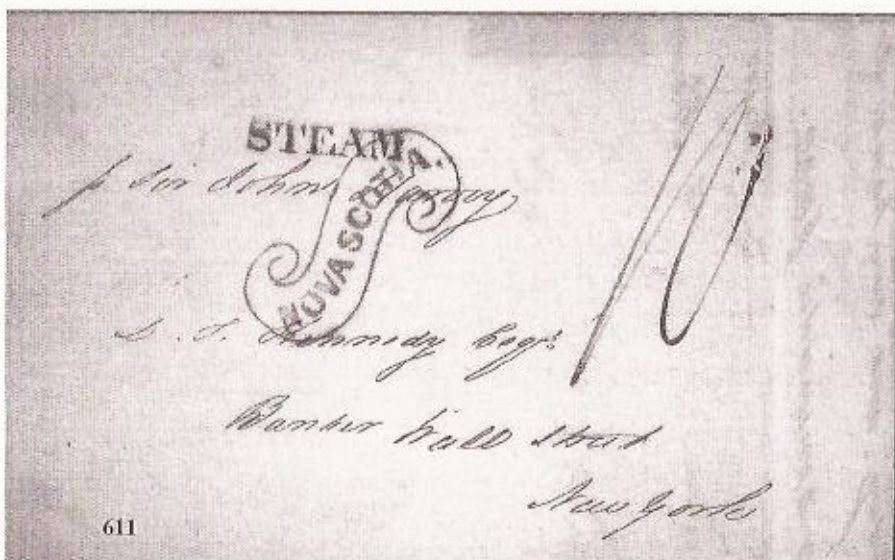 STEAM
NOVA SCOTIA.
p Sir John
10
Kennedy Esqr.
Banker Wall Street
New York
611